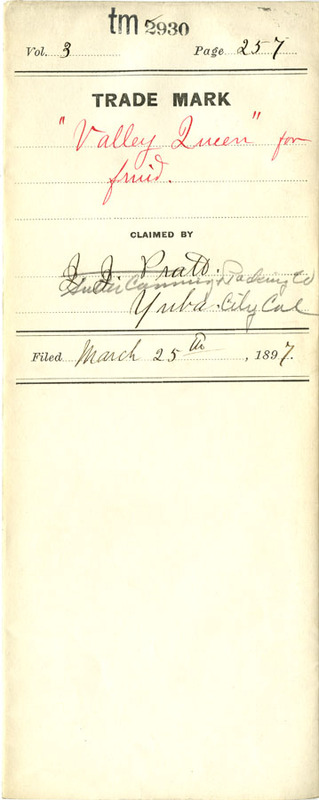 tm 2930
Vol. 3 Page 257
TRADE MARK
"Valley Queen" for
fruit.
CLAIMED BY
J. J. Pratt.
Sutter Canning & Packing Co
Yuba City Cal
Filed March 25th, 1897.